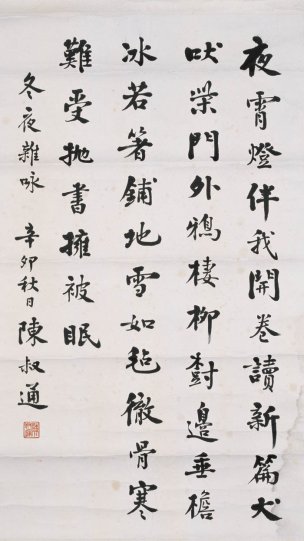 夜霄燈伴我開卷讀新篇犬
吠柴門外鴉棲柳樹邊垂檐
冰若箸鋪地雪如毡徹骨寒
難受抛書擁被眠
冬夜雜咏 辛卯秋日 陳叔通